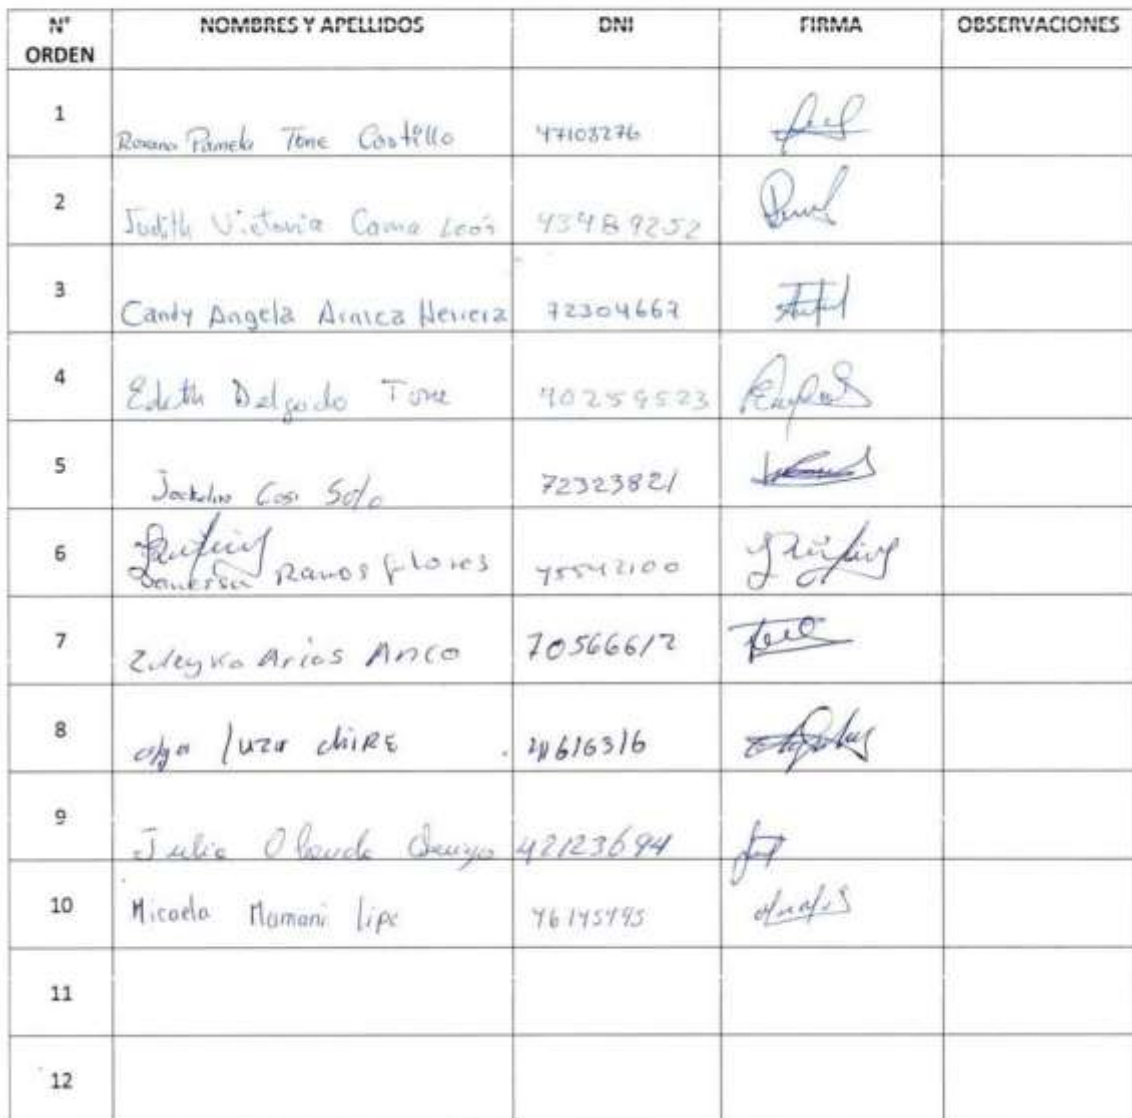 N° NOMBRES Y APELLIDOS DNI FIRMA OBSERVACIONES
ORDEN
1 Roxana Pamela Tone Castillo 47103276
2 Judith Victoria Cama León 43489252
3 Candy Angela Arnica Herrera 72304667
4 Edith Delgado Tone 70259523
5 Jackeline Cosi Soto 72323821
6 Vanessa Ramos Flores 75542100
7 Zuleyka Arias Anco 70566612
8 olga luza chiRE
9 Julia Obando 42123694
10 Micaela Mamani lipe
11
12